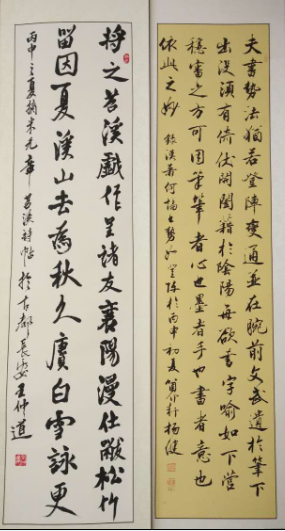 夫書勢法猶若登陣變通並在腕前文武遺於筆下
出沒須有倚伏開闔籍於陰陽每欲書字喻如下營
穩審之方可用筆筆者心也墨者手也書者意也
依此之妙 錄漢蕭何論書勢 於丙申初夏 楊健
将之苕溪戲作呈諸友襄陽漫仕黻松竹
留因夏溪山去為秋久賡白雪詠更
丙申之夏摘米元章苕溪詩帖於古都長安王仲道